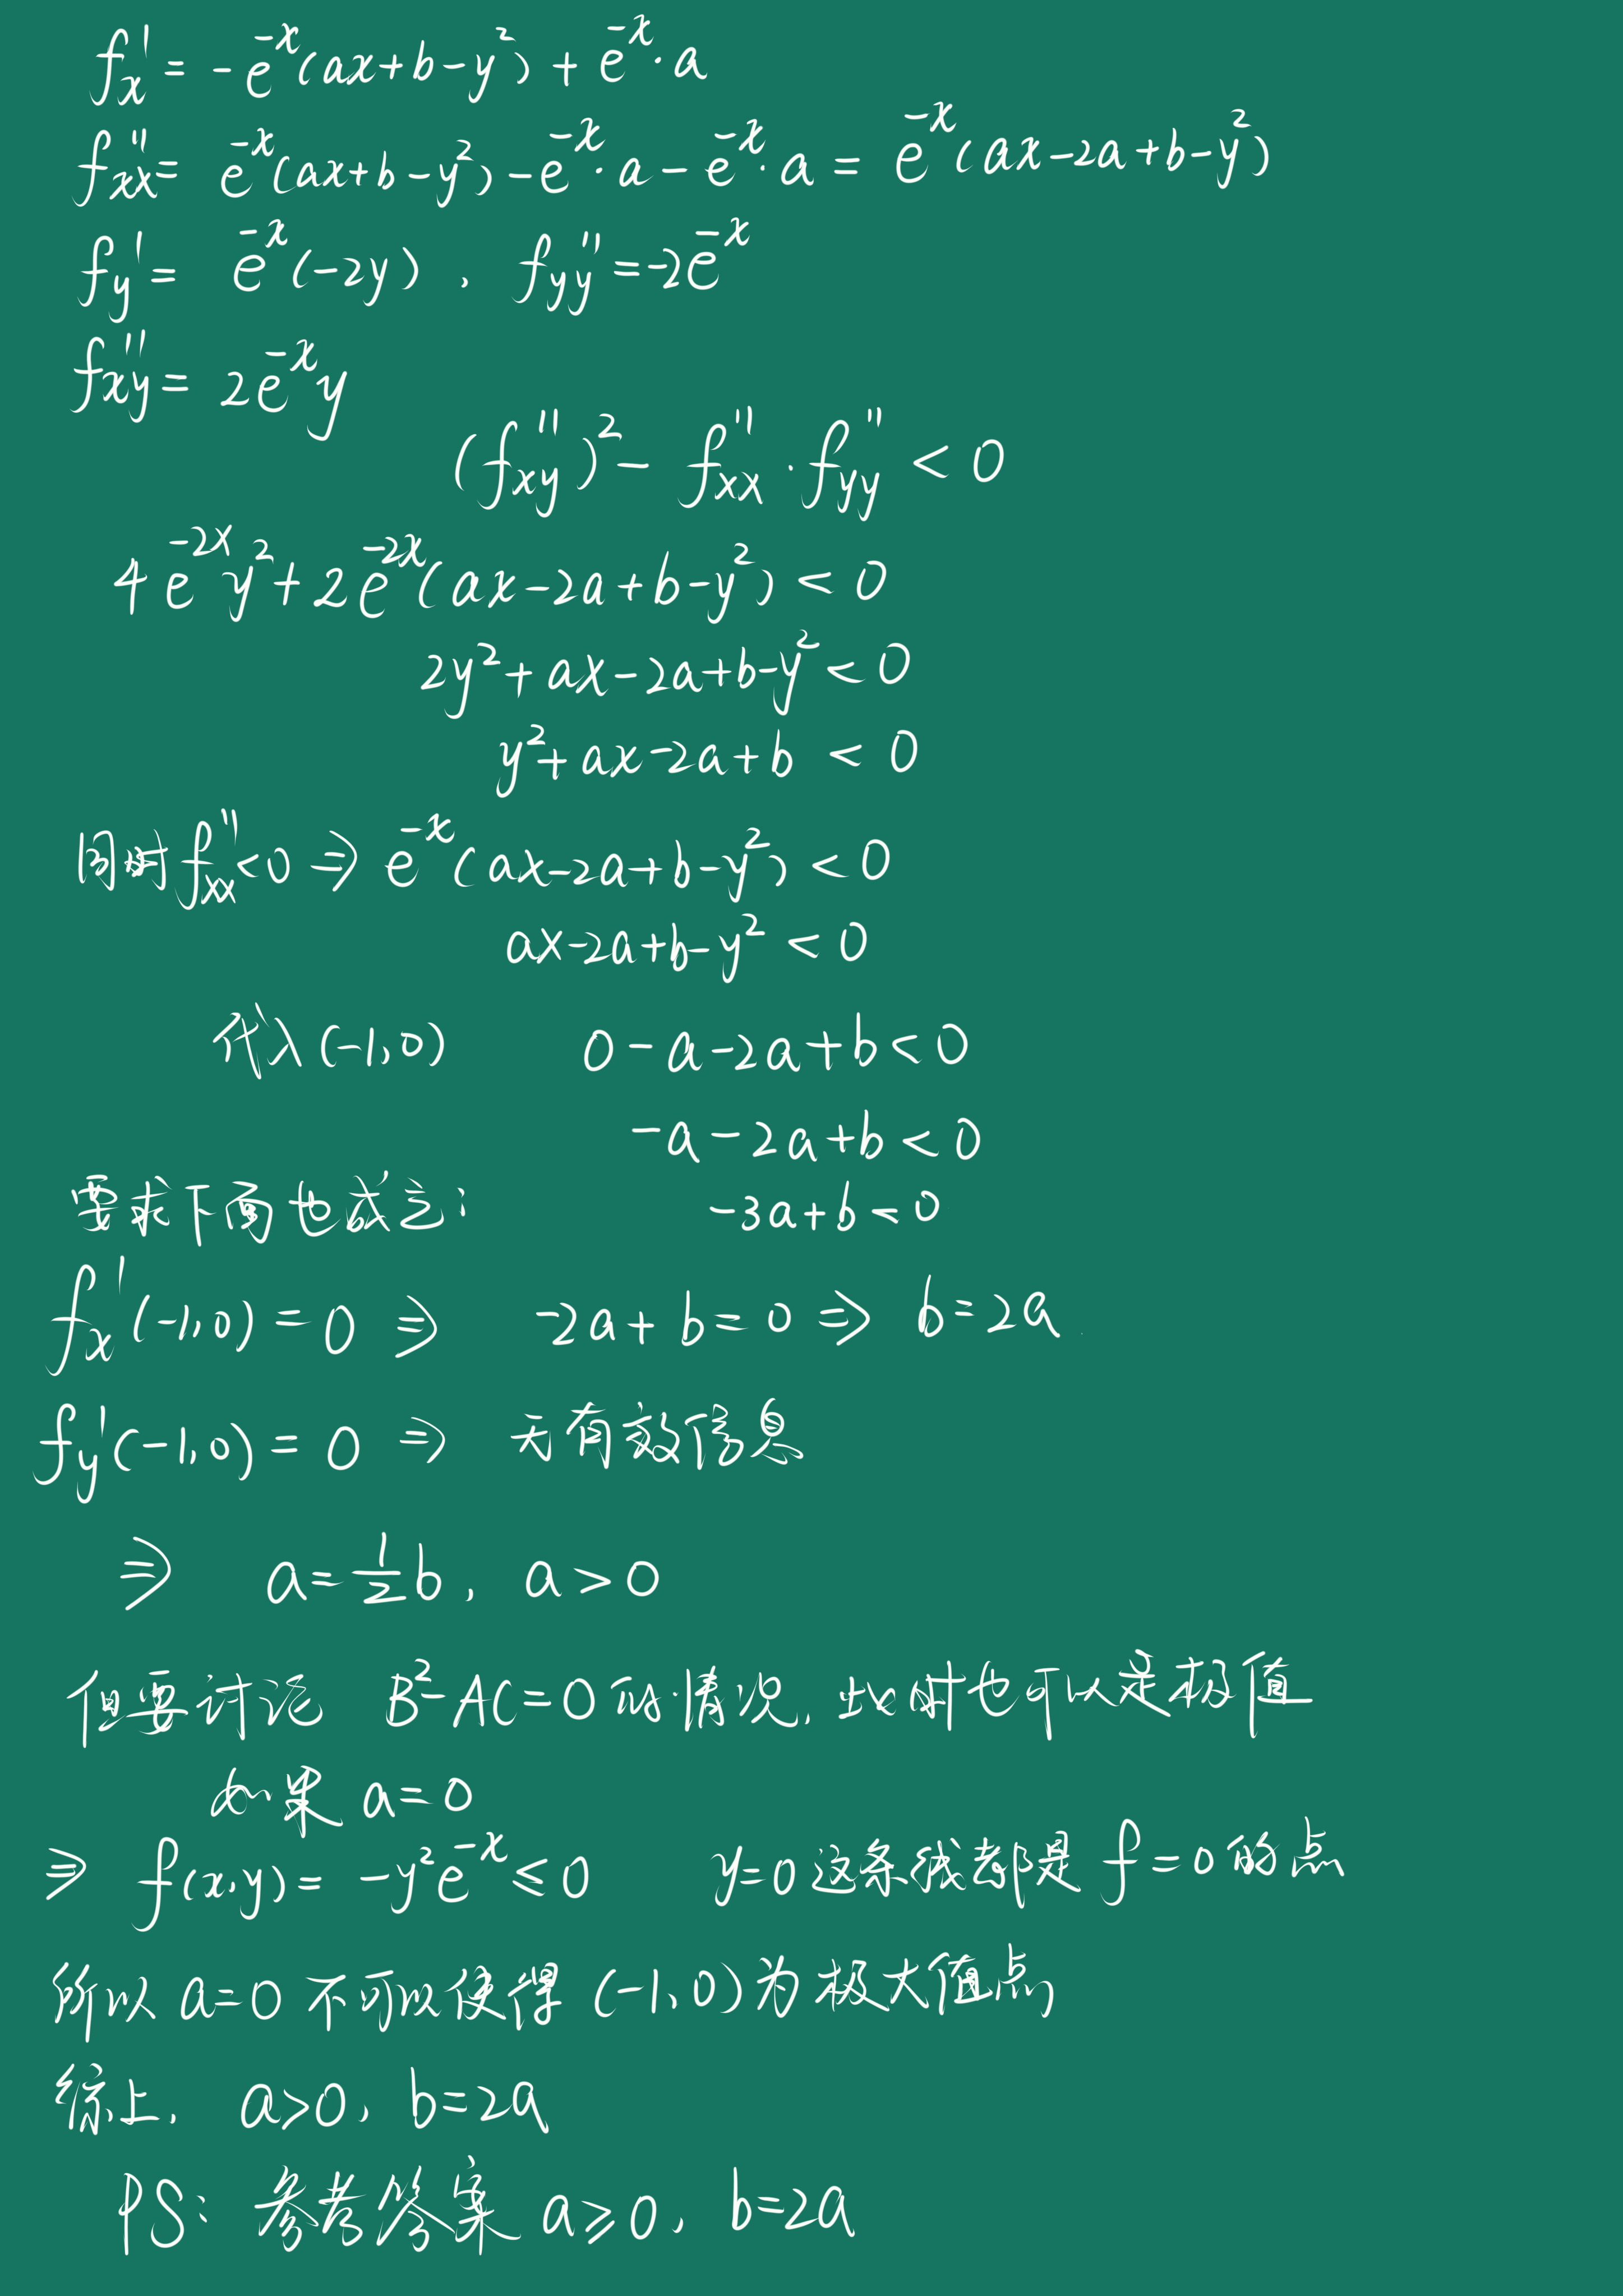 f'ₓ = -e⁻ˣ(ax+b-y²) + e⁻ˣ·a
f''ₓₓ = e⁻ˣ(ax+b-y²) - e⁻ˣ·a - e⁻ˣ·a = e⁻ˣ(ax-2a+b-y²)
f'_y = e⁻ˣ(-2y), f''_yy = -2e⁻ˣ
f''_xy = 2e⁻ˣy
(f''_xy)² - f''_xx·f''_yy < 0
4e⁻²ˣy² + 2e⁻²ˣ(ax-2a+b-y²) < 0
2y²+ax-2a+b-y² < 0
y²+ax-2a+b < 0
同时 f''_xx < 0 ⇒ e⁻ˣ(ax-2a+b-y²) < 0
ax-2a+b-y² < 0
代入(-1,0) 0-a-2a+b < 0
-a-2a+b < 0
-3a+b < 0
要求下面也成立:
f'ₓ(-1,0) = 0 ⇒ -2a+b=0 ⇒ b=2a
f'_y(-1,0) = 0 ⇒ 无有效信息
⇒ a=½b, a>0
但要讨论 B²-AC=0 的情况, 此时也可以是极值
如果 a=0
⇒ f(x,y) = -y²e⁻ˣ ≤ 0 y=0 这条线都是 f=0 的点
所以 a=0 不可以使得 (-1,0) 为极大值点
综上, a>0, b=2a
PS: 参考答案 a≥0, b=2a